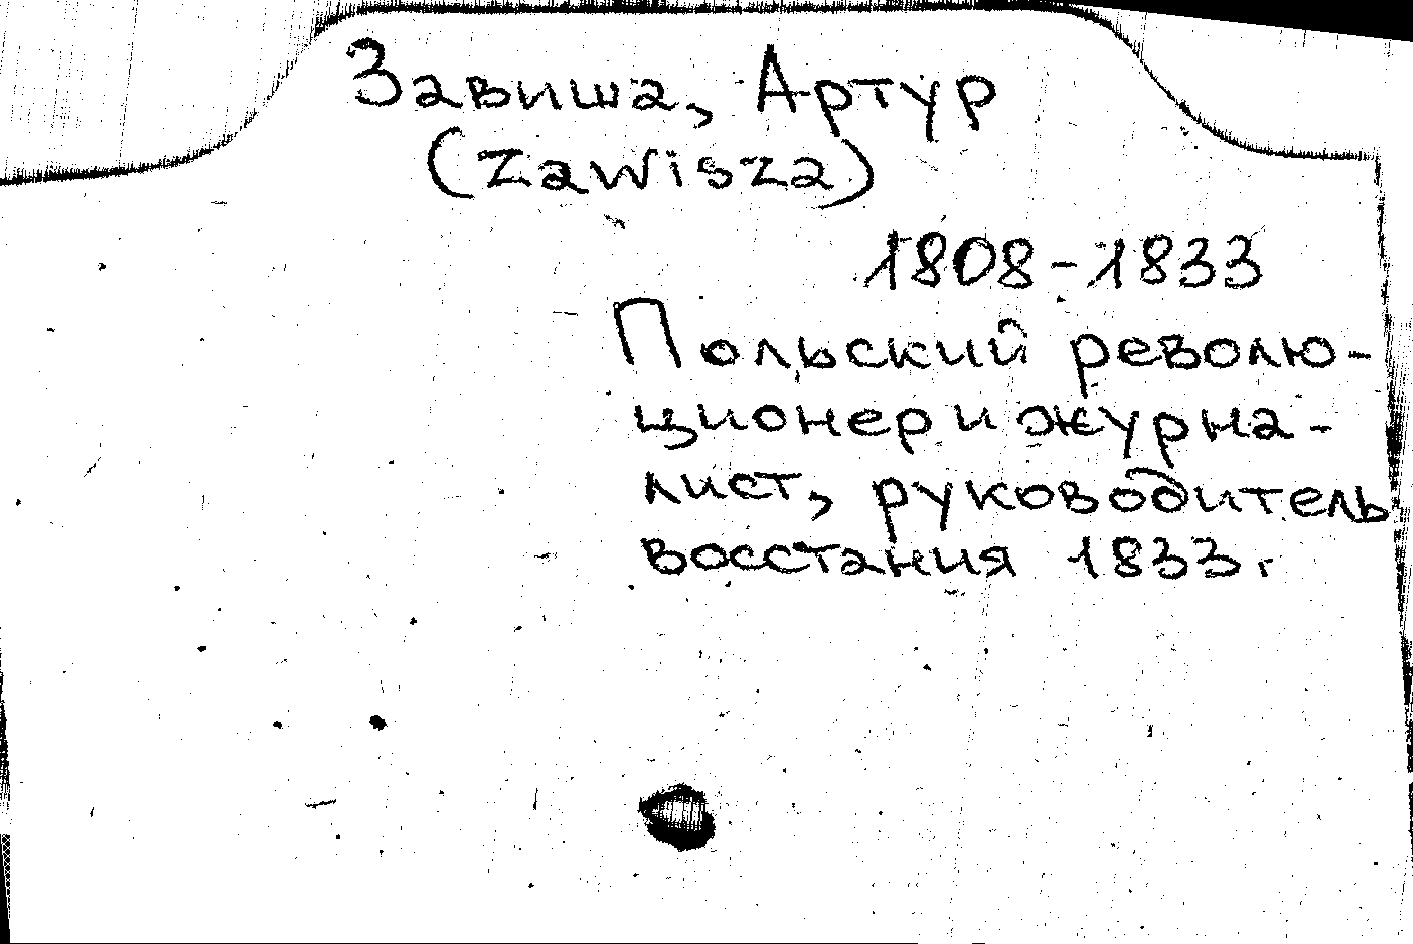 Завиша, Артур
(Zawisza)
1808-1833
Польский револю-
ционер и журна-
лист, руководитель
восстания 1833 г